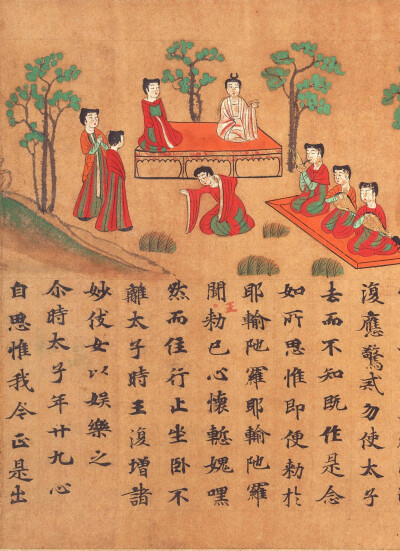 復應驚戒勿使太子
去而不知既作是念
如所思惟即便勅於
耶輸陁羅耶輸陁羅
王
聞勅已心懷慙愧嘿
然而住行止坐卧不
離太子時王復增諸
妙伎女以娛樂之
尒時太子年廿九心
自思惟我今正是出